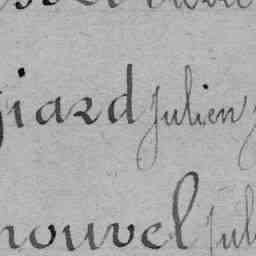 iard Julien
nouvel Jul